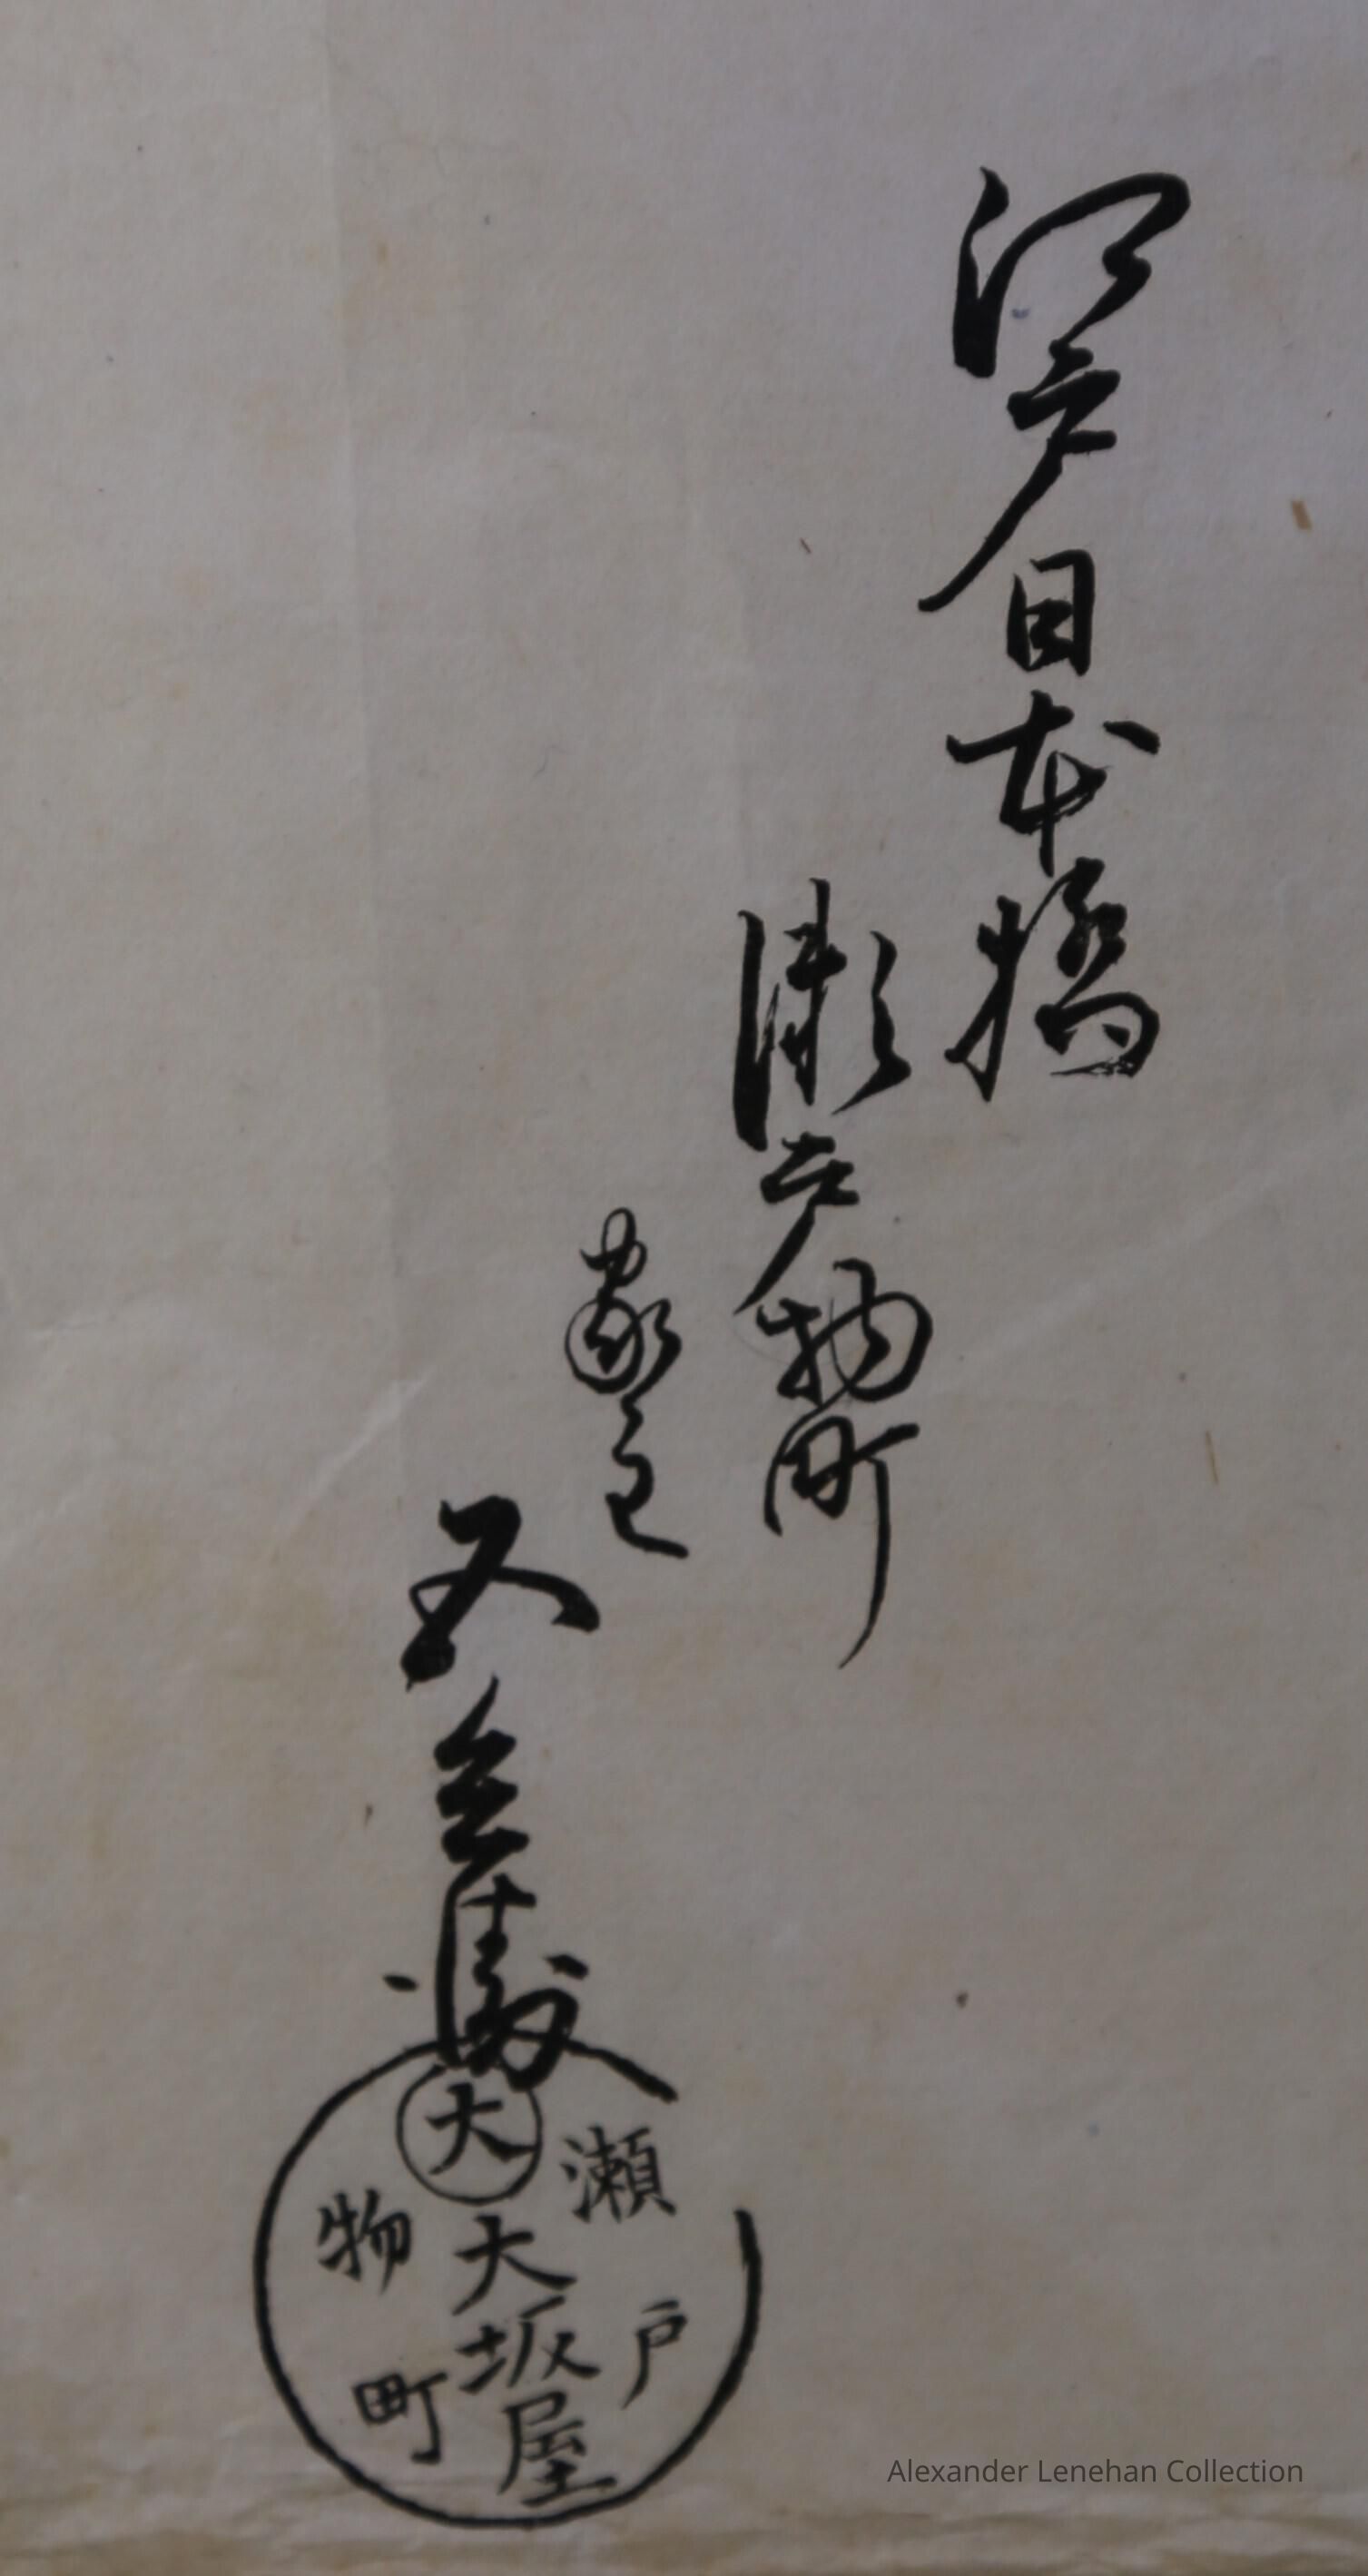 江戸日本橋
瀬戸物町
家主
又兵衛
大
大坂屋
瀬戸物町
Alexander Lenehan Collection